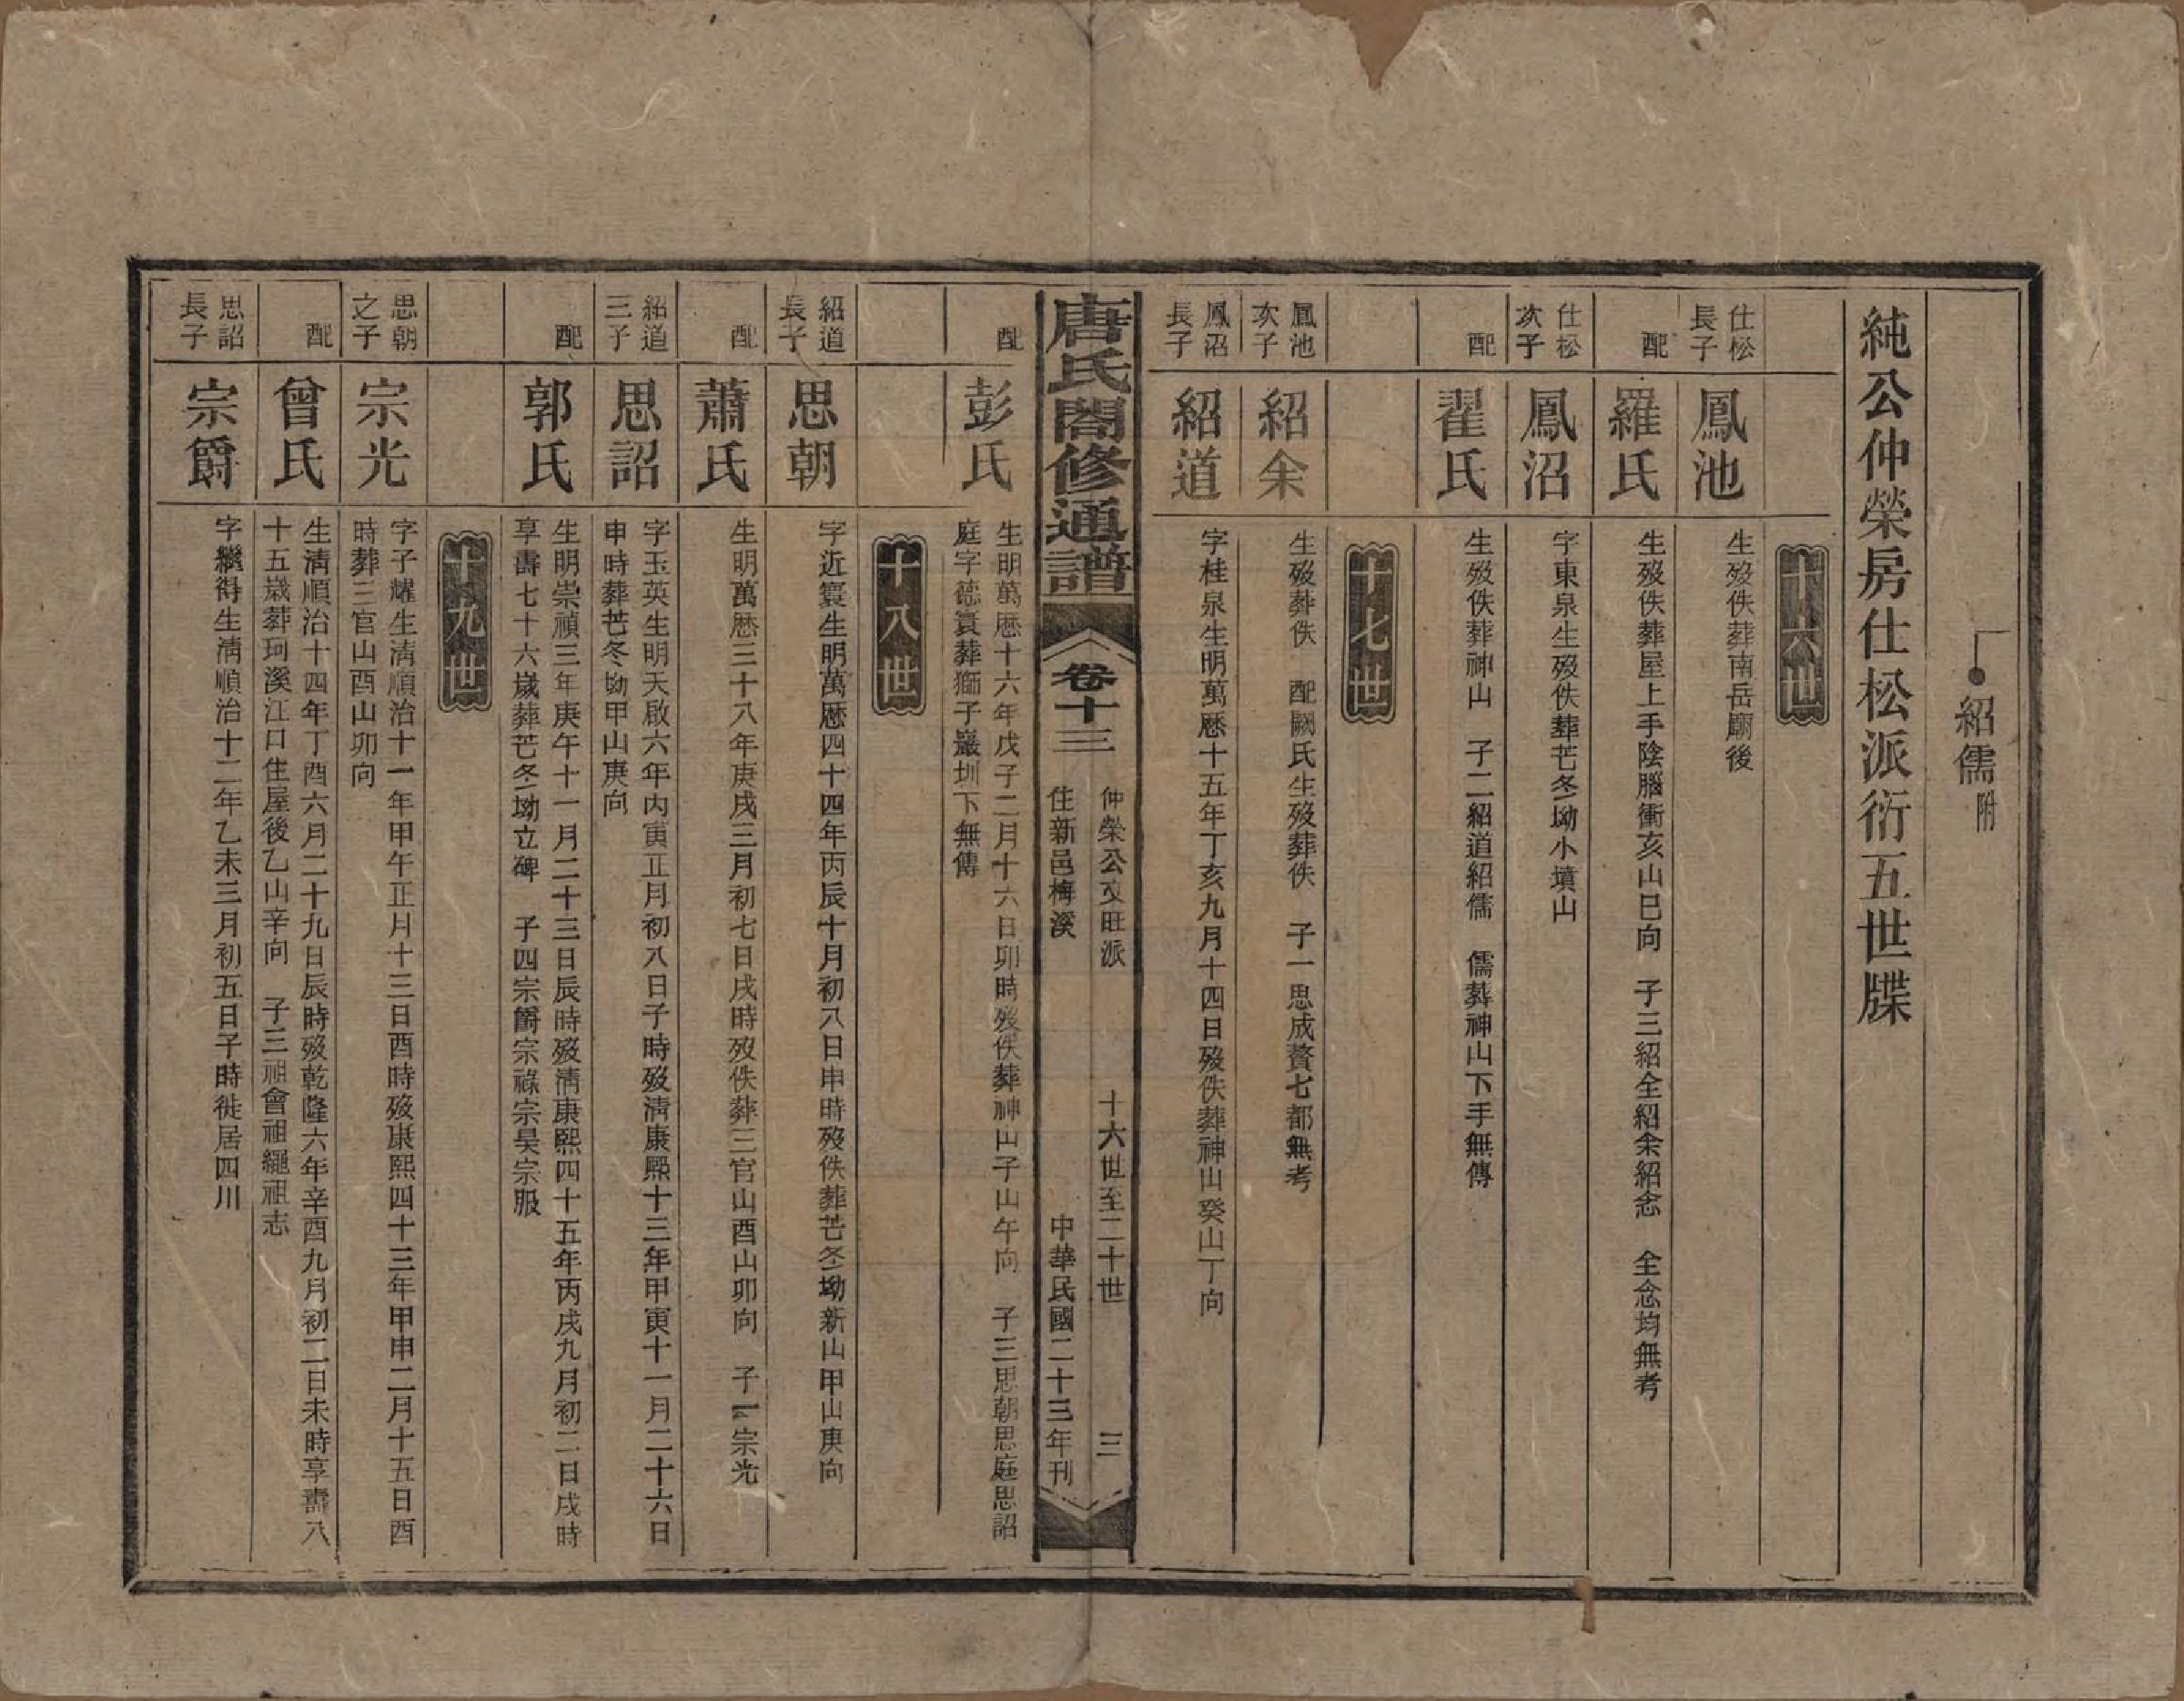 紹儒附
純公仲榮房仕松派衍五世牒
十六世
仕松長子
鳳池
生歿佚葬南岳廟後
配
羅氏
生歿佚葬屋上手陰腦衝亥山巳向　子三紹全紹余紹念　全念均無考
仕松次子
鳳沼
字東泉生歿佚葬芒冬坳小墳山
配
翟氏
生歿佚葬神山　子二紹道紹儒　儒葬神山下手無傳
十七世
鳳池次子
紹余
生歿葬佚　配闕氏生歿葬佚　子一思成贅七都無考
鳳沼長子
紹道
字桂泉生明萬歷十五年丁亥九月十四日歿佚葬神山癸山丁向
唐氏閤修通譜
卷十三
仲榮公文旺派
十六世至二十世
三
住新邑梅溪
中華民國二十三年刊
配
彭氏
生明萬歷十六年戊子二月十六日卯時歿佚葬神山子山午向　子三思朝思庭思詔
庭字德寰葬獅子巖圳下無傳
十八世
紹道長子
思朝
字近寰生明萬歷四十四年丙辰十月初八日申時歿佚葬芒冬坳新山甲山庚向
配
蕭氏
生明萬歷三十八年庚戌三月初七日戌時歿佚葬三官山酉山卯向　子一宗光
紹道三子
思詔
字玉英生明天啟六年內寅正月初八日子時歿清康熙十三年甲寅十一月二十六日
申時葬芒冬坳甲山庚向
配
郭氏
生明崇禎三年庚午十一月二十三日辰時歿清康熙四十五年丙戌九月初二日戌時
享壽七十六歲葬芒冬坳立碑　子四宗爵宗祿宗昊宗服
十九世
思朝之子
宗光
字子耀生清順治十一年甲午正月十三日酉時歿康熙四十三年甲申二月十五日酉
時葬三官山酉山卯向
配
曾氏
生清順治十四年丁酉六月二十九日辰時歿乾隆六年辛酉九月初二日未時享壽八
十五歲葬珂溪江口住屋後乙山辛向　子三祖會祖繩祖志
思詔長子
宗爵
字繼得生清順治十二年乙未三月初五日子時徙居四川